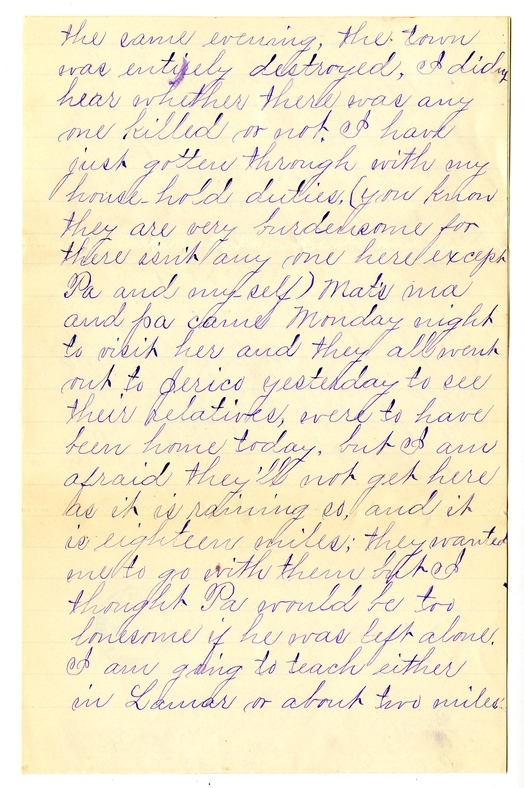 the same evening, the town
was entirely destroyed, I didn't
hear whether there was any
one killed or not. I have
just gotten through with my
house-hold duties. (you know
they are very burdensome for
there isn't any one here except
Pa and my self) Mat's ma
and pa came Monday night
to visit her and they all went
out to Jerico yesterday to see
their relatives, were to have
been home today, but I am
afraid they'll not get here
as it is raining so, and it
is eighteen miles; they wanted
me to go with them but I
thought Pa would be too
lonesome if he was left alone.
I am going to teach either
in Lamar or about two miles